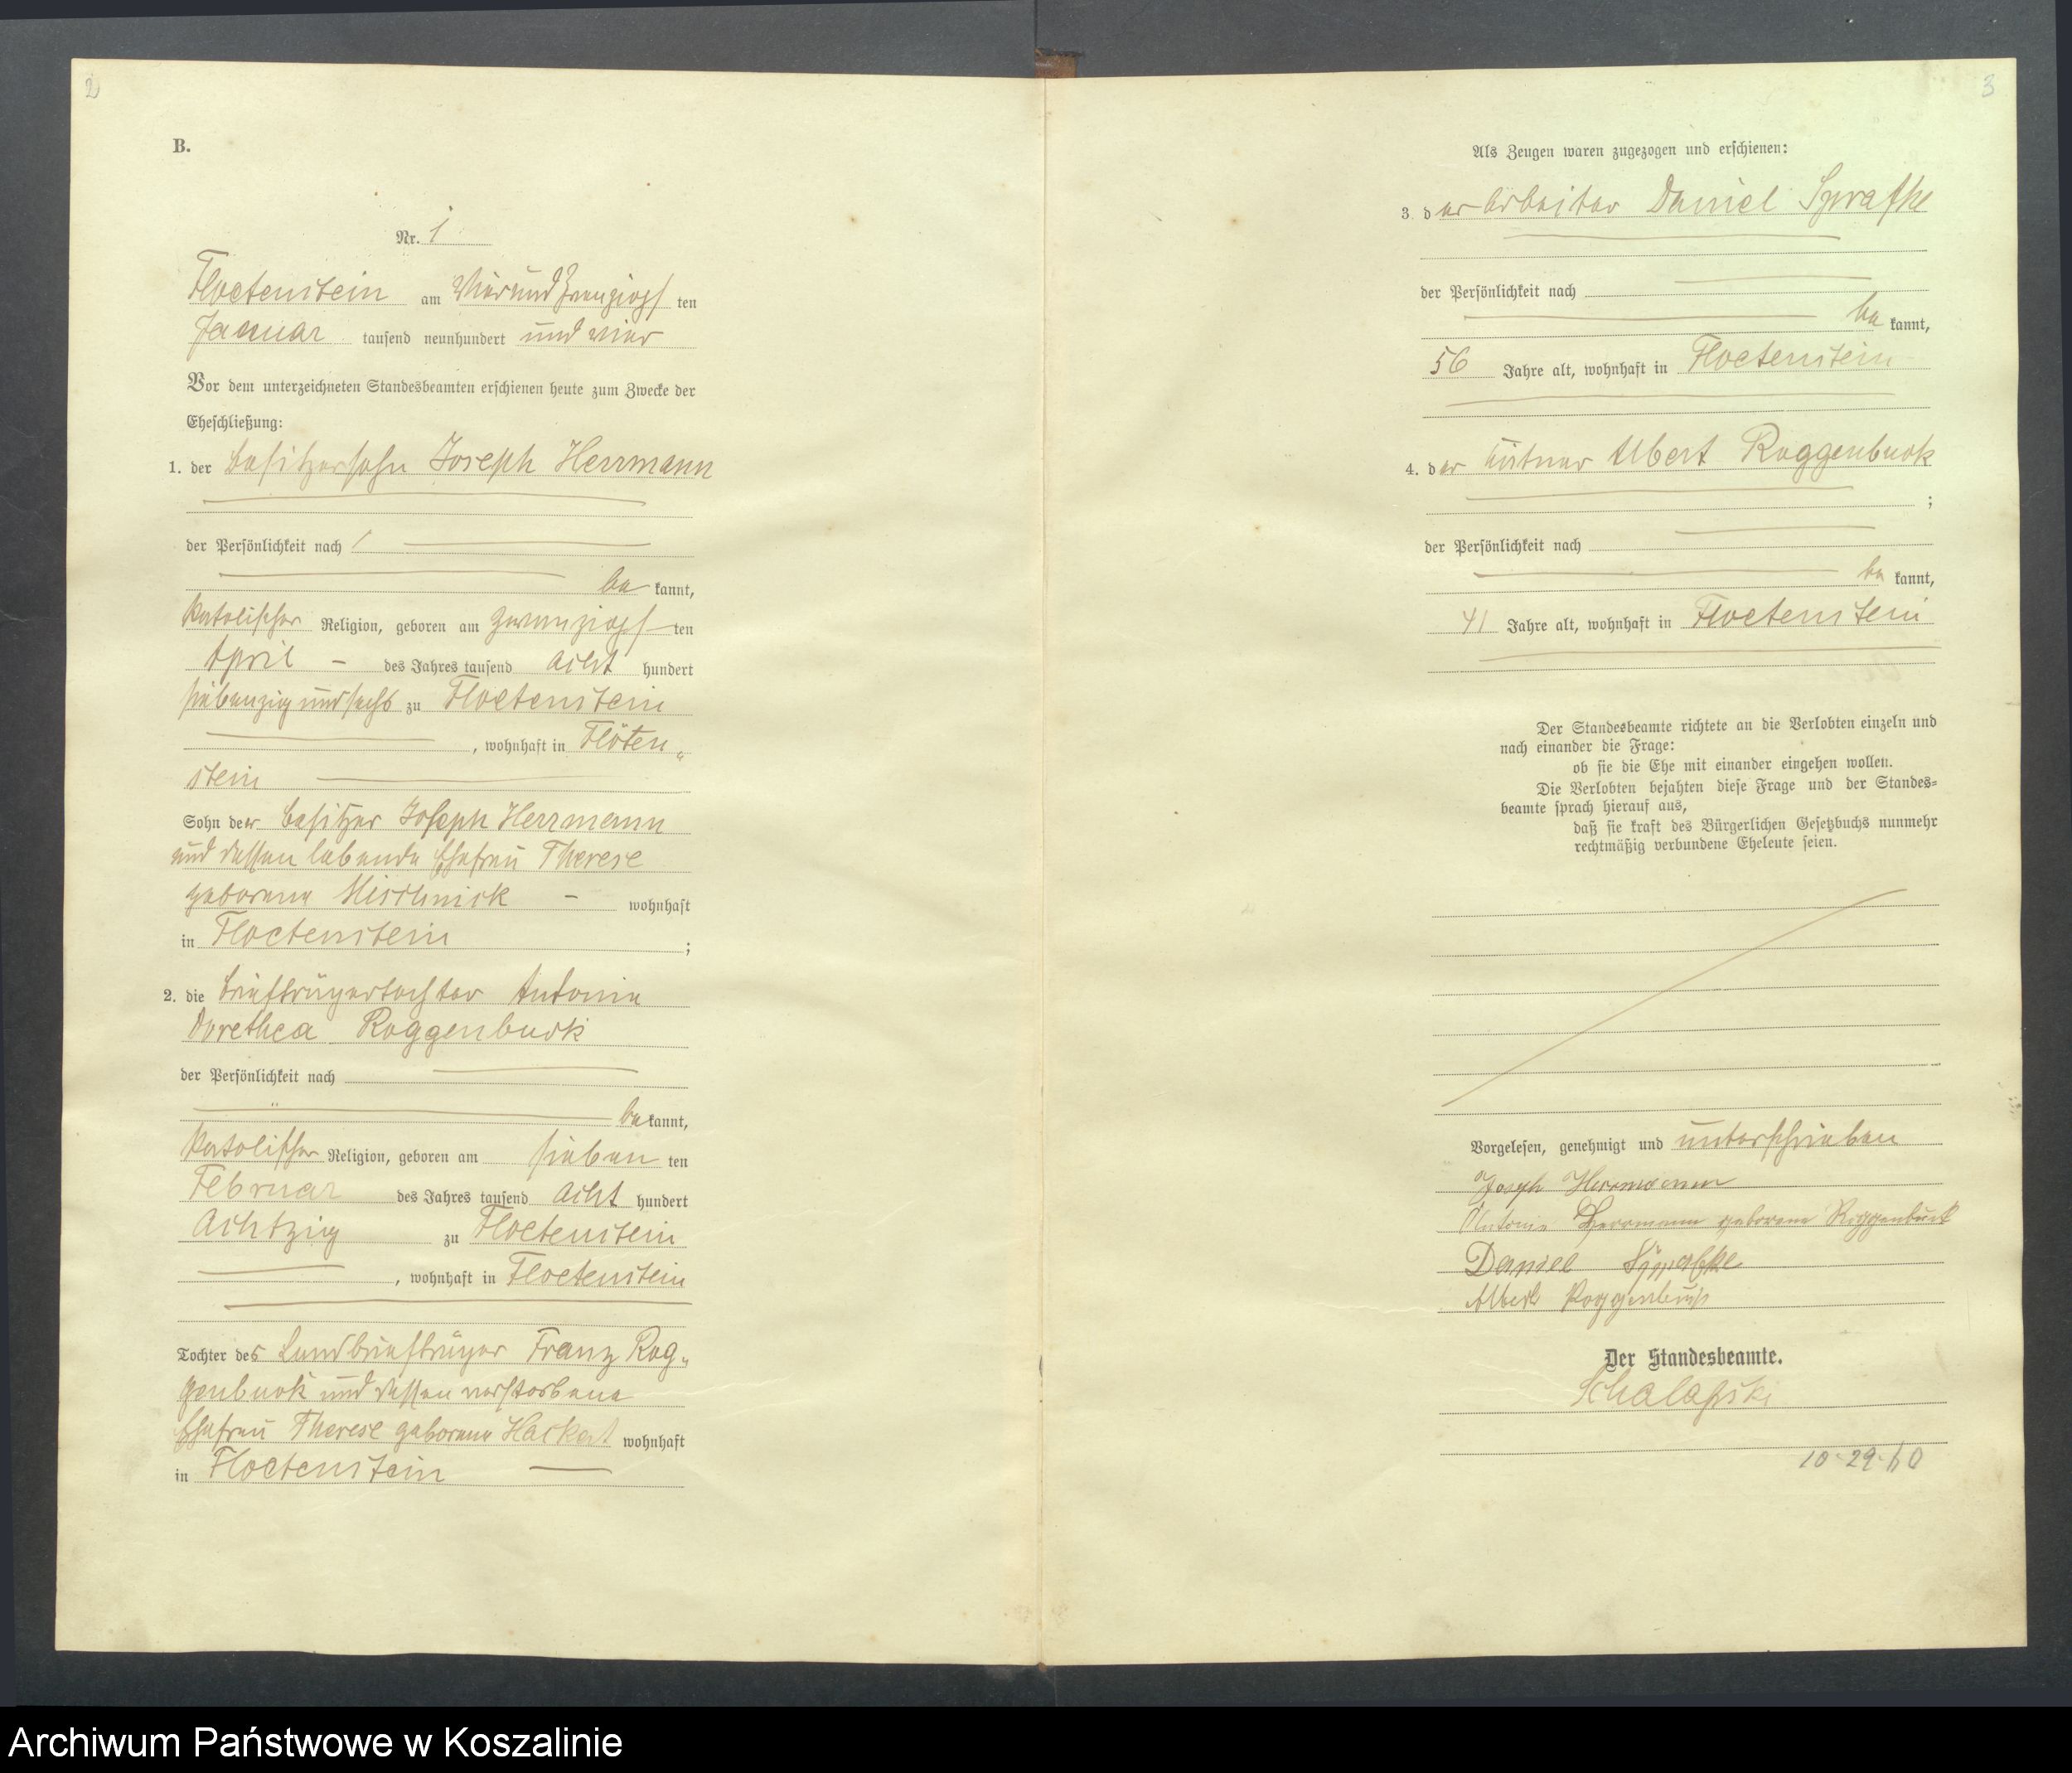 2
B.
Nr. 1
Floetenstein am Vierundzwanzigsten
Januar tausend neunhundert und vier
Vor dem unterzeichneten Standesbeamten erschienen heute zum Zwecke der
Eheschließung:
1. der Besitzersohn Joseph Herrmann
der Persönlichkeit nach
bekannt,
katolischer Religion, geboren am zwanzigsten
April des Jahres tausend acht hundert
siebenzig und sechs zu Floetenstein
, wohnhaft in Flöten„
stein
Sohn der Besitzer Joseph Herrmann
und dessen lebende Ehefrau Therese
geborene Mischnick wohnhaft
in Floetenstein ;
2. die Briefträgertochter Antonie
Dorethea Roggenbuck
der Persönlichkeit nach
bekannt,
katolischer Religion, geboren am sieben ten
Februar des Jahres tausend acht hundert
Achtzig zu Floetenstein
, wohnhaft in Floetenstein
Tochter des Landbriefträger Franz Rog„
genbuck und dessen verstorbene
Ehefrau Therese geborene Hackert wohnhaft
in Floetenstein
3
Als Zeugen waren zugezogen und erschienen:
3. der Arbeiter Daniel Spratke
der Persönlichkeit nach
bekannt,
56 Jahre alt, wohnhaft in Floetenstein
4. der Albert Roggenbuck
;
der Persönlichkeit nach
bekannt,
41 Jahre alt, wohnhaft in Floetenstein
Der Standesbeamte richtete an die Verlobten einzeln und
nach einander die Frage:
ob sie die Ehe mit einander eingehen wollen.
Die Verlobten bejahten diese Frage und der Standes=
beamte sprach hierauf aus,
daß sie kraft des Bürgerlichen Gesetzbuchs nunmehr
rechtmäßig verbundene Eheleute seien.
Vorgelesen, genehmigt und unterschrieben
Joseph Herrmann
Antonie Herrmann geborene Roggenbuck
Daniel
Albert Roggenbuck
Der Standesbeamte.
10-29-60
Archiwum Państwowe w Koszalinie